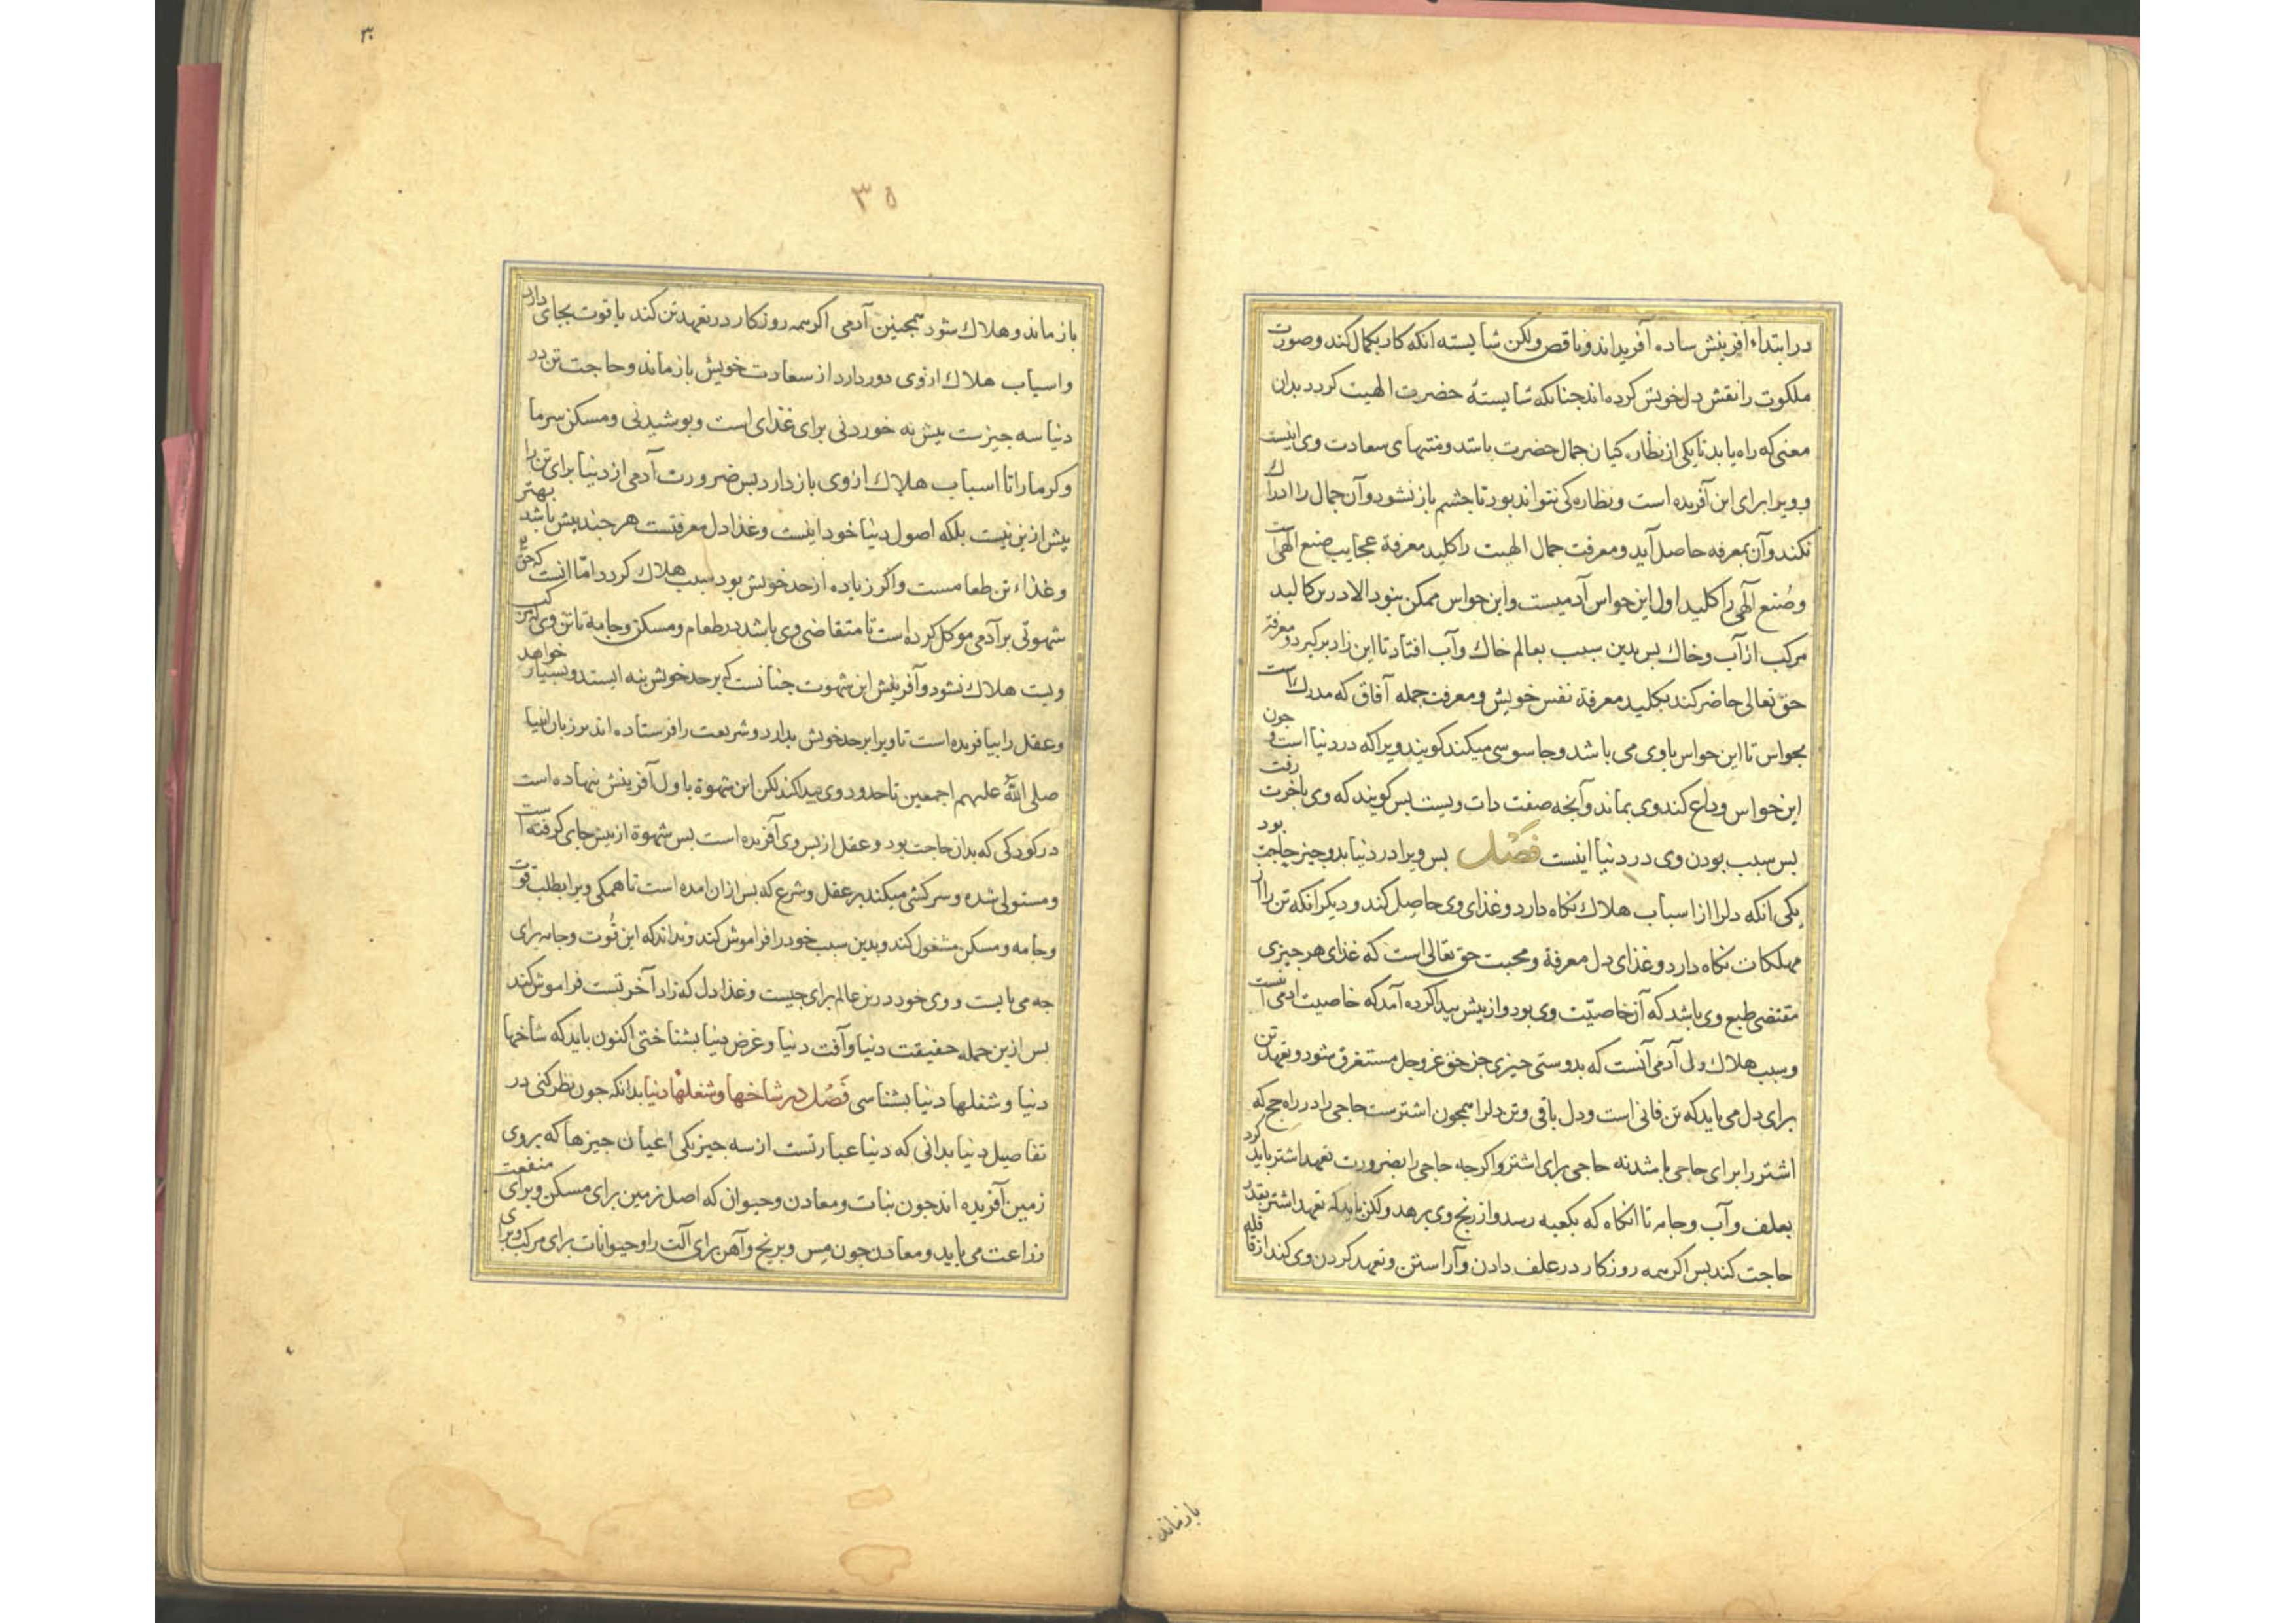 در ابتداء آفرینش ساده آفریداند و ناقص ولکن شایسته انکه کار بکمال کند و صورت
ملکوت را نقش دل خویش کرده اند جنانکه شایستهٔ حضرت الهیت کردد بدان
معنی که راه یابد تا یکی از نظارکیان جمال حضرت باشد و منتهای سعادت وی اینست
و ویرا برای این آفریده است و نظاره کی نتواند بود تا جشم باز نشود و آن جمال را ادراک
نکند و آن بمعرفه حاصل آید و معرفت جمال الهیت را کلید معرفة عجایب صنع الهی است
و صُنع آلهی را کلید اول این حواس آدمیست و این حواس ممکن نبود الا درین کالبد
مرکب از آب و خاک بس بدین سبب بعالم خاک و آب افتاد تا این زاد برکیرد و معرفة
حق تعالی حاضر کند بکلید معرفة نفس خویش و معرفت جمله آفاق که مدرک است
بحواس تا این حواس با وی می باشد و جاسوسی میکند کویند ویرا که در دنیا است و جون
این حواس وداع کند وی بماند و آنجه صفت دات ویست بس کویند که وی باخرت رفت
بس سبب بودن وی در دنیا اینست فَصْل بس ویرا در دنیا بدو جیز حاجت بود
یکی انکه دلرا از اسباب هلاک نکاه دارد و غذای وی حاصل کند و دیکر انکه تن را از
مهلکات نکاه دارد و غذای دل معرفة و محبت حق تعالی است که غذای هر جیزی
مقتضی طبع وی باشد که آن خاصیّت وی بود و از بیش بیدا کرده آمد که خاصیت ادمی آنست
و سبب هلاک دل آدمی آنست که بدوستی جیزی جز حق عز وجل مستغرق شود و تعهد تن
برای دل می باید که تن فانی است و دل باقی و تن دلرا همجون اشترست حاجی را در راه حج که
اشتر را برای حاجی باشد نه حاجی برای اشتر و اکر جه حاجی را بضرورت تعهد اشتر باید کرد
بعلف و آب و جامه تا انکاه که بکعبه رسد و از رنج وی برهد ولکن باید که تعهد اشتر بقدر
حاجت کند بس اکر همه روزکار در علف دادن و آراستن و تعهد کردن وی کند از قافله
بازماند
۳۰
۳۵
باز ماند و هلاک شود همجنین آدمی اکر همه روزکار در تعهد تن کند یا قوت بجای دارد
و اسباب هلاک از وی دور دارد از سعادت خویش باز ماند و حاجت تن در
دنیا سه جیزست بیش نه خوردنی برای غذای است و بوشیدنی و مسکن سرما
و کرما را تا اسباب هلاک از وی باز دارد بس ضرورت آدمی از دنیا برای تن را
بیش ازین نیست بلکه اصول دنیا خود اینست و غذا دل معرفتست هر جند بیش باشد بهتر
و غذاء تن طعامست و اکر زیاده از حد خویش بود سبب هلاک کردد امّا انست که حق
شهوتی بر آدمی موکل کرده است تا متقاضی وی باشد در طعام و مسکن و جامه تا تن وی که مرکب
ویست هلاک نشود و آفرینش این شهوت جنانست که بر حد خویش بنه ایستد و بسیار خواهد
و عقل را بیافریده است تا ویرا بر حد خویش بدارد و شریعت را فرستاده اند بر زبان انبیا
صلی اللهُ علیهم اجمعین تا حدود وی بیدا کند لکن این شهوة باول آفرینش بنهاده است
در کودکی که بدان حاجت بود و عقل از بس وی آفریده است بس شهوة از بیش جای کرفته است
و مستولی شده و سرکشی میکند بر عقل و شرع که بس ازان امده است تا همکی ویرا بطلب قوت
و جامه و مسکن مشغول کند و بدین سبب خود را فراموش کند و نداند که این قُوت و جامه برای
جه می بایست و وی خود درین عالم برای جیست و غذا دل که زاد آخرتست فراموش کند
بس ازین جمله حقیقت دنیا و آفت دنیا و غرض دنیا بشناختی اکنون باید که شاخها
دنیا و شغلها دنیا بشناسی فَصْل در شاخها و شغلها دنیا بدانکه جون نظر کنی در
تفاصیل دنیا بدانی که دنیا عبارتست از سه جیز یکی اعیان جیزها که بر روی
زمین آفریده اند جون نبات و معادن و حیوان که اصل زمین برای مسکن و برای منفعت
زراعت می باید و معادن جون مِس و برنج و آهن برای آلت را و حیوانات برای مرکب و برای